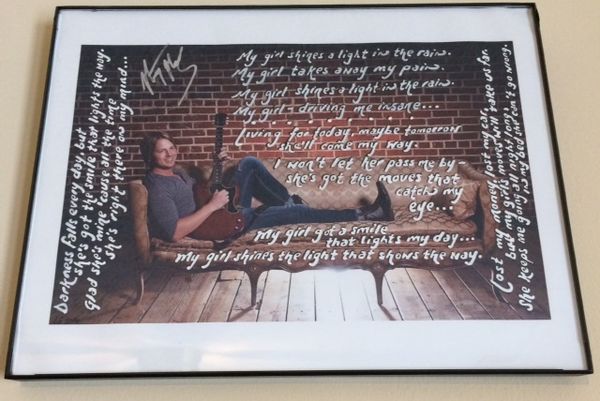 My girl shines a light in the rain.
My girl takes away my pain.
My girl shines a light in the rain.
My girl - driving me insane...
Living for today, maybe tomorrow
she'll come my way.
I won't let her pass me by -
she's got the moves that
catch my
eye...
My girl got a smile
that lights my day...
My girl shines the light that shows the way.
Darkness falls every day, but
she's got the smile that lights the way.
Glad she's mine 'cause all the time
she's right there on my mind...
Lost my money, lost my car,
but my girl's moves will take us far.
She keeps me going all night long,
in my bed she can't go wrong.